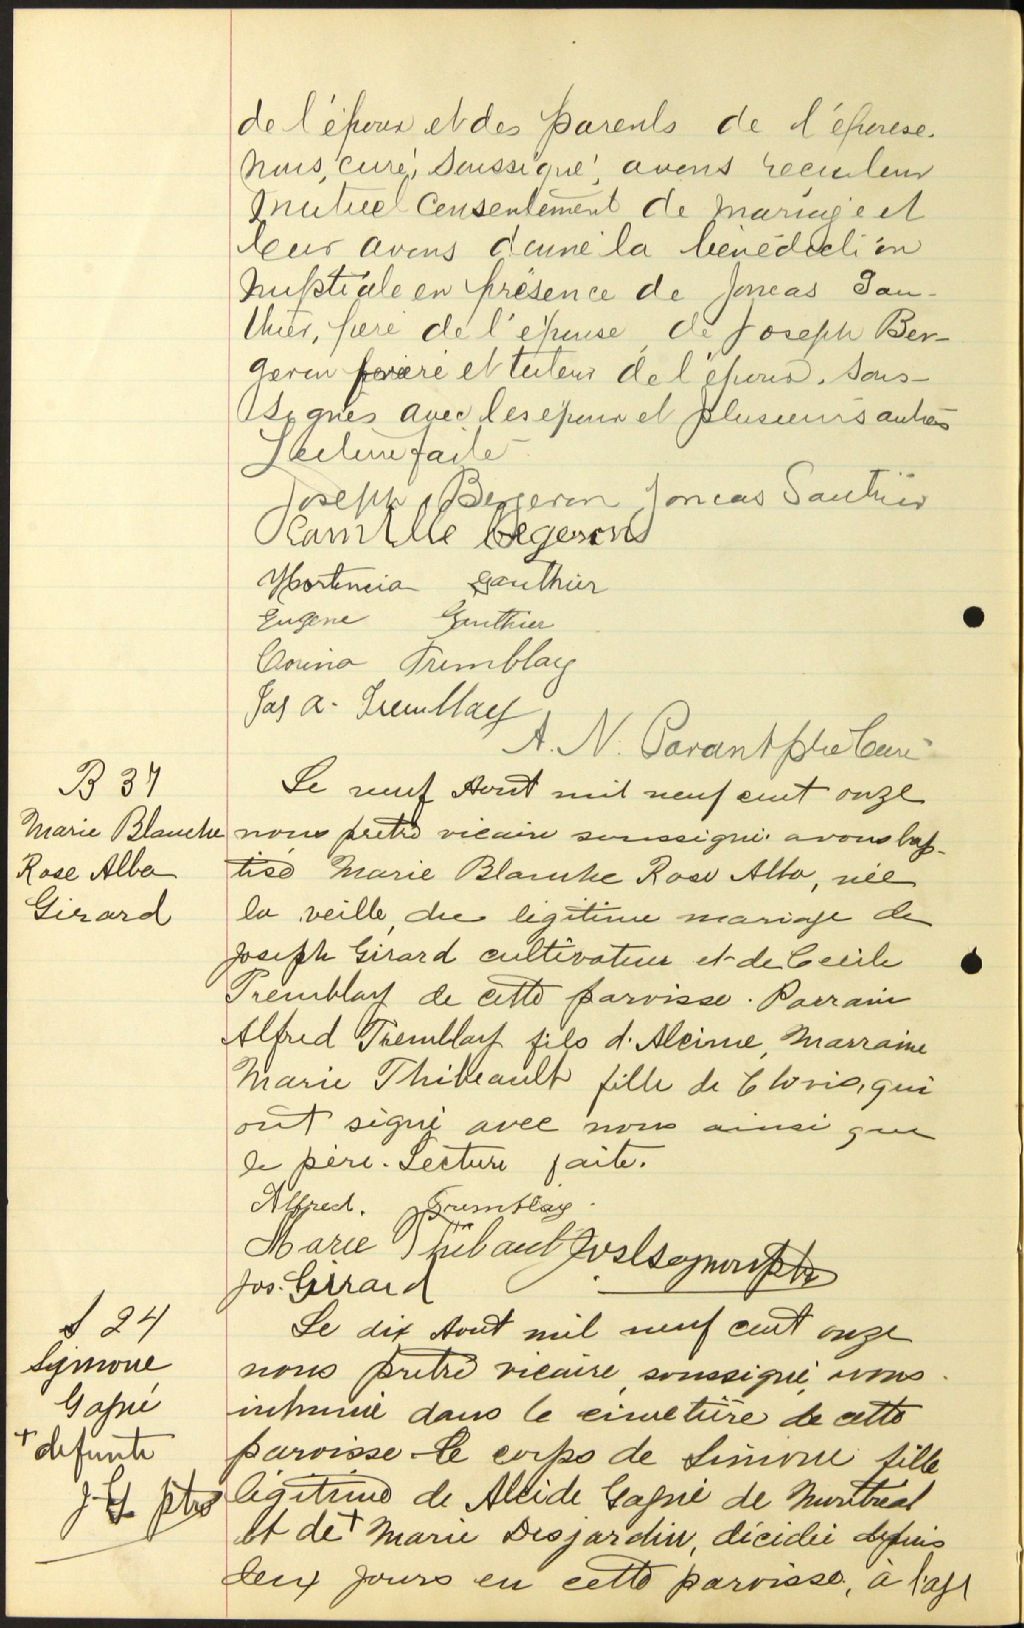 de l'époux et des parents de l'épouse.
Nous, curé, soussigné, avons reçu leur
mutuel consentement de mariage et
leur avons donné la bénédiction
nuptiale en présence de Joncas Gau-
thier, père de l'épouse, de Joseph Ber-
geron frère et tuteur de l'époux, sous-
signés avec les époux et plusieurs autres
Lecture faite
Joseph Bergeron Joncas Gauthier
Camille Begeron
Hortencia Gauthier
Eugene Gauthier
Corina Tremblay
Jos A. Tremblay
A. N. Parant ptre Curé
B 37
Marie Blanche
Rose Alba
Girard
Le neuf Aout mil neuf cent onze
nous pretre vicaire soussigné avons bap-
tisé Marie Blanche Rose Alba, née
la veille, du légitime mariage de
Joseph Girard cultivateur et de Cecile
Tremblay de cette paroisse. Parrain
Alfred Tremblay fils d'Alcime, Marraine
Marie Thibeault fille de Clovis, qui
ont signé avec nous ainsi que
le père. Lecture faite.
Alfred. Tremblay
Marie Thibault
Jos. Girard
S 24
Symone
Gagné
+ defunte
J. G. ptre
Le dix Aout mil neuf cent onze
nous pretre vicaire, soussigné, avons
inhumé dans le cimetière de cette
paroisse le corps de Simone fille
légitime de Alcide Gagné de Montréal
et de + Marie Desjardin, décédée depuis
deux jours en cette paroisse, à l'age